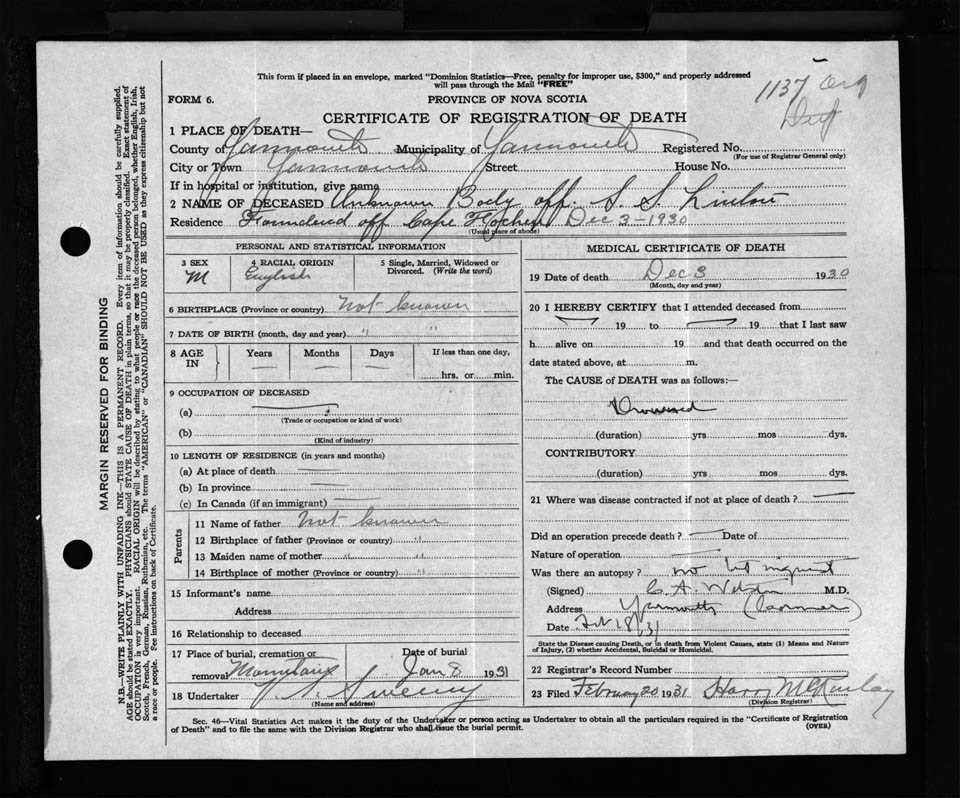 This form if placed in an envelope, marked "Dominion Statistics—Free, penalty for improper use, $300," and properly addressed
will pass through the Mail "FREE"
1137
FORM 6.
PROVINCE OF NOVA SCOTIA
CERTIFICATE OF REGISTRATION OF DEATH
1 PLACE OF DEATH—
County of Yarmouth Municipality of Yarmouth Registered No.
(For use of Registrar General only)
City or Town Yarmouth Street House No.
If in hospital or institution, give name
2 NAME OF DECEASED Unknown Body off S. S. Linton
Residence Foundered off Cape Dec 3-1930
(Usual place of abode)
PERSONAL AND STATISTICAL INFORMATION
3 SEX
M
4 RACIAL ORIGIN
English
5 Single, Married, Widowed or
Divorced. (Write the word)
6 BIRTHPLACE (Province or country) Not known
7 DATE OF BIRTH (month, day and year) " "
8 AGE
IN
Years Months Days If less than one day,
— — — hrs. or min.
9 OCCUPATION OF DECEASED
(a)
(Trade or occupation or kind of work)
(b)
(Kind of industry)
10 LENGTH OF RESIDENCE (in years and months)
(a) At place of death
(b) In province
(c) In Canada (if an immigrant)
Parents
11 Name of father Not known
12 Birthplace of father (Province or country) "
13 Maiden name of mother " "
14 Birthplace of mother (Province or country) "
15 Informant's name
Address
16 Relationship to deceased
17 Place of burial, cremation or
removal Mountain
Date of burial
Jan 8 1931
18 Undertaker V. S. Sweeny
(Name and address)
MEDICAL CERTIFICATE OF DEATH
19 Date of death Dec 3 1930
(Month, day and year)
20 I HEREBY CERTIFY that I attended deceased from
19 to 19 that I last saw
h alive on 19 and that death occurred on the
date stated above, at m.
The CAUSE of DEATH was as follows:—
Drowned
(duration) yrs mos dys.
CONTRIBUTORY
(duration) yrs mos dys.
21 Where was disease contracted if not at place of death ?
Did an operation precede death ? Date of
Nature of operation
Was there an autopsy ? no but inquest
(Signed) C. A. Webster M.D.
Address Yarmouth (Coroner)
Date Feb 18/31
State the Disease causing Death, or in death from Violent Causes, state (1) Means and Nature
of Injury, (2) whether Accidental, Suicidal or Homicidal.
22 Registrar's Record Number
23 Filed February 20 1931 Harry McKinlay
(Division Registrar)
Sec. 46—Vital Statistics Act makes it the duty of the Undertaker or person acting as Undertaker to obtain all the particulars required in the "Certificate of Registration
of Death" and to file the same with the Division Registrar who shall issue the burial permit.
(OVER)
MARGIN RESERVED FOR BINDING
N.B.—WRITE PLAINLY WITH UNFADING INK—THIS IS A PERMANENT RECORD. Every item of information should be carefully supplied.
AGE should be stated EXACTLY. PHYSICIANS should STATE CAUSE OF DEATH in plain terms, so that it may be properly classified. Exact statement of
OCCUPATION is very important. RACIAL ORIGIN will be described by stating to what people or race the deceased person belonged, whether English, Irish,
Scotch, French, German, Russian, Ruthenian, etc. The terms "AMERICAN" or "CANADIAN" SHOULD NOT BE USED as they express citizenship but not
a race or people. See instructions on back of Certificate.